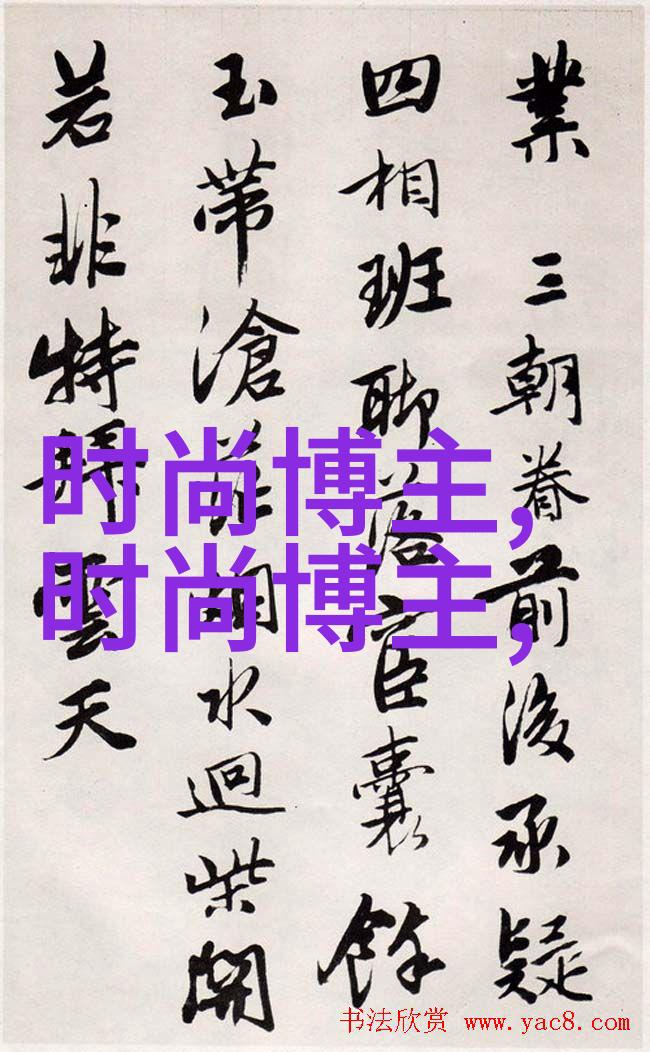 業 三朝眷前後承疑
四相班聊落宦囊餘
玉帶滄水迴柴開
若非特雲天
时尚博主,
时尚博主,
书法欣赏 www.yac8.com